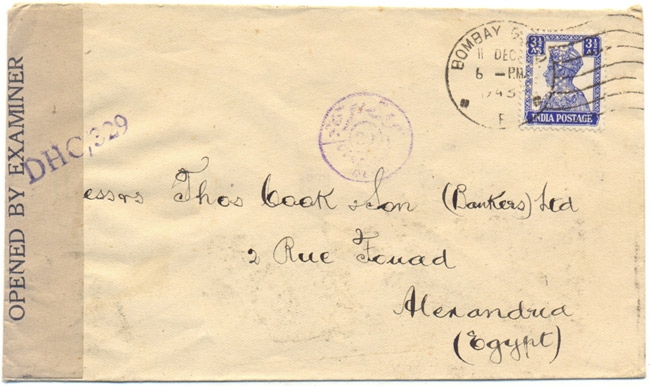 OPENED BY EXAMINER
DHC/329
BOMBAY G
11 DEC
6 - PM
1943
3½ As
3½ As
INDIA POSTAGE
essrs Thos Cook & Son (Bankers) Ltd
2 Rue Fouad
Alexandria
(Egypt)